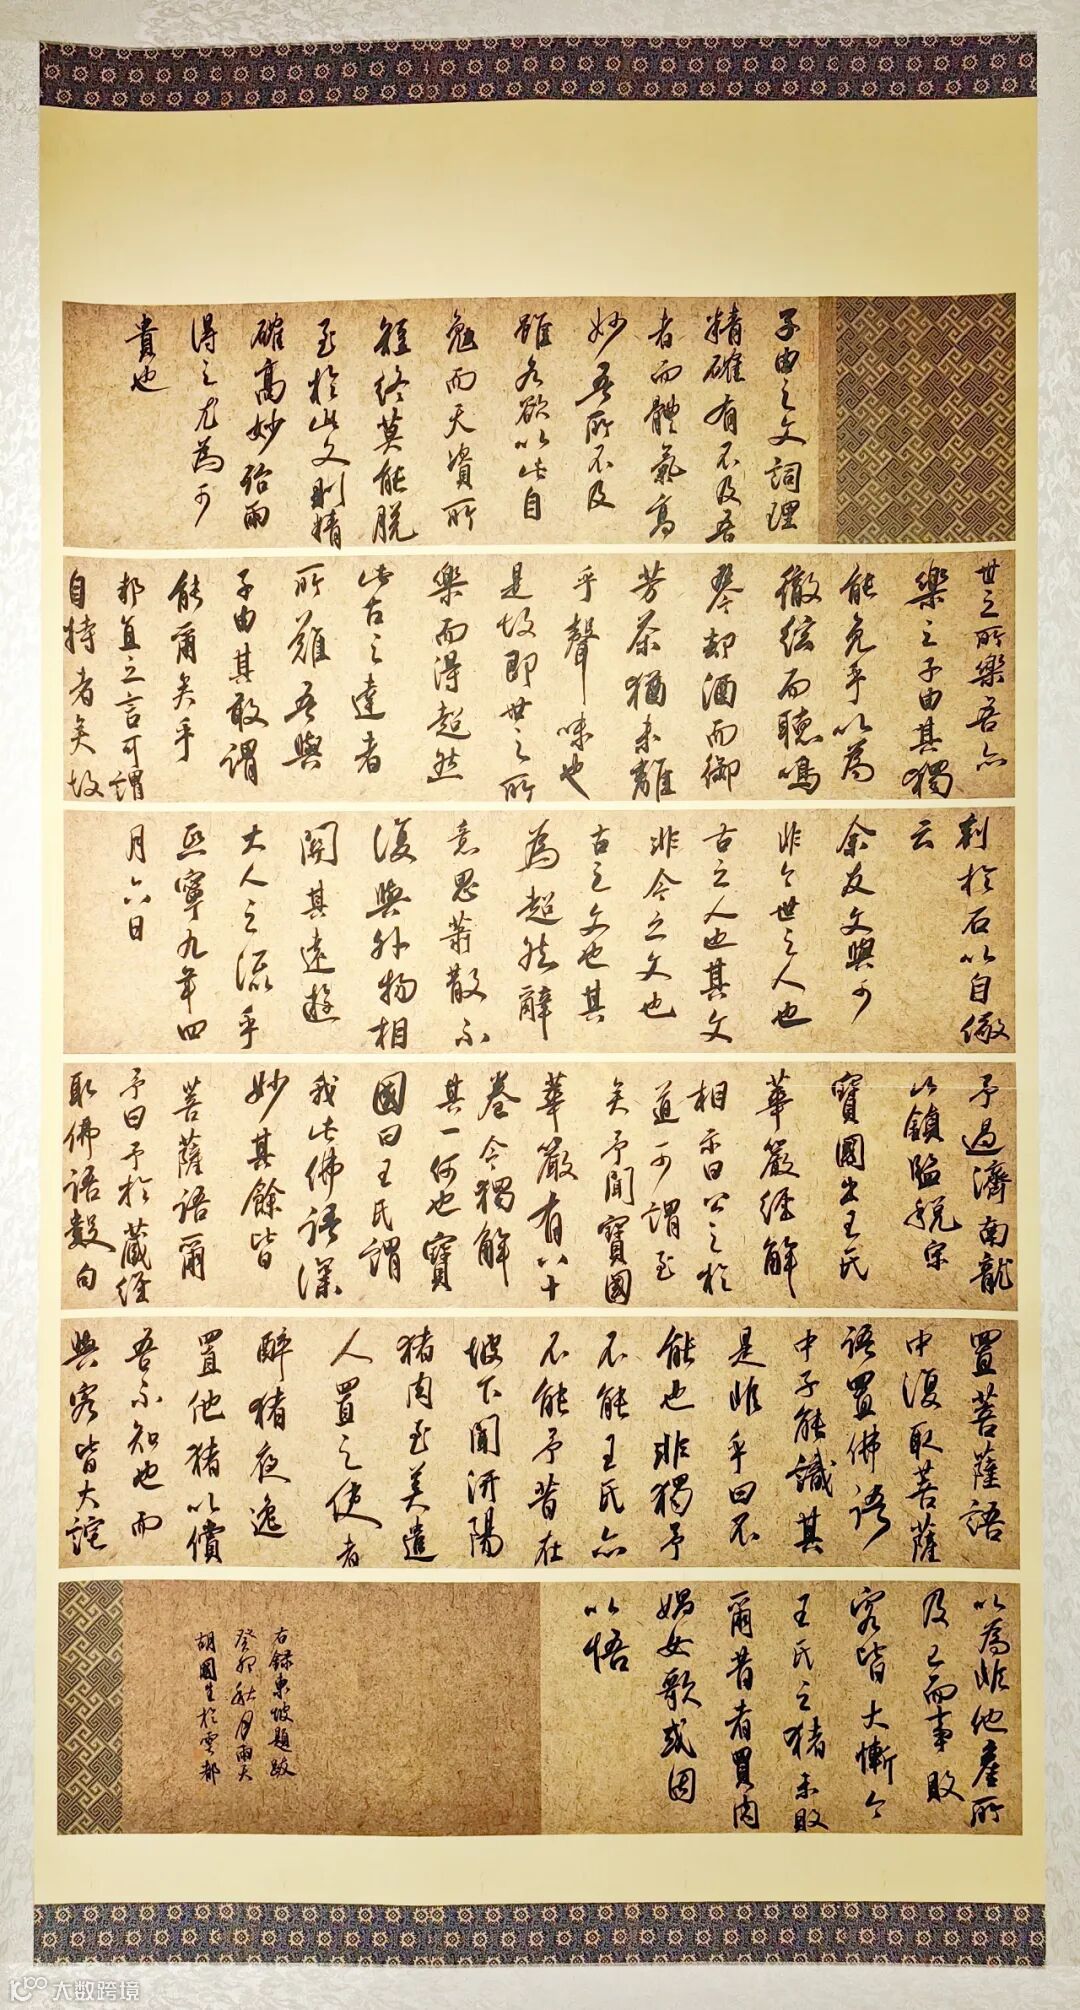 子由之文詞理
精確有不及吾
者而體氣高
妙吾所不及
雖各欲以此自
勉而天資所
短終莫能脫
至於此文則精
確高妙殆兩
得之尤為可
貴也
世之所樂吾亦
樂之子由其獨
能免乎以為
徹絃而聽鳴
琴却酒而御
芳茶猶未離
乎聲味也
是故即世之所
樂而得超然
此古之達者
所難吾與
子由其敢謂
能爾矣乎
邦直之言可謂
自持者矣故
刻於石以自儆
云
余友文與可
非今世之人也
古之人也其文
非今之文也
古之文也其
為超然辭
意思蕭散不
復與外物相
關其遠遊
大人之流乎
熙寧九年四
月六日
予過濟南龍
山鎮監稅宋
寶國出王氏
華嚴經解
相示曰公之於
道可謂至
矣予聞寶國
華嚴有八十
卷今獨解
其一何也寶
國曰王氏謂
我此佛語深
妙其餘皆
菩薩語爾
予曰予於藏經
取佛語數句
置菩薩語
中復取菩薩
語置佛語
中子能識其
是非乎曰不
能也非獨予
不能王氏亦
不能予昔在
坡下聞汧陽
猪肉至美遣
人置之使者
醉猪夜逸
置他猪以償
吾不知也而
與客皆大詫
以為非他產所
及已而事敗
客皆大慚今
王氏之猪未敗
爾昔者買肉
娼女歌或因
以悟
右錄東坡題跋
癸卯秋月雨天
胡國生於雲都
大数跨境